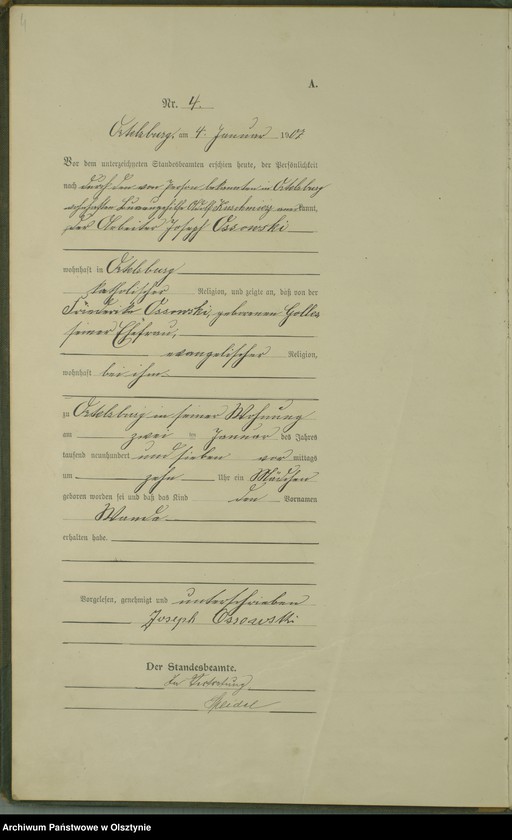 4
A.
Nr. 4.
Ortelsburg, am 4. Januar 1907
Vor dem unterzeichneten Standesbeamten erschien heute, der Persönlichkeit
nach durch den von Person bekannten in Ortelsburg
Adolf kannt,
der Arbeiter Joseph Ossowski
wohnhaft in Ortelsburg
katholischer Religion, und zeigte an, daß von der
Friederike Ossowski, geborenen Golles
seiner Ehefrau,
evangelischer Religion,
wohnhaft bei ihm
zu Ortelsburg in seiner Wohnung
am zwei ten Januar des Jahres
tausend neunhundert und sieben vor mittags
um zehn Uhr ein Mädchen
geboren worden sei und daß das Kind den Vornamen
Wanda
erhalten habe.
Vorgelesen, genehmigt und unterschrieben
Joseph Ossowski
Der Standesbeamte.
In Vertretung
Archiwum Państwowe w Olsztynie